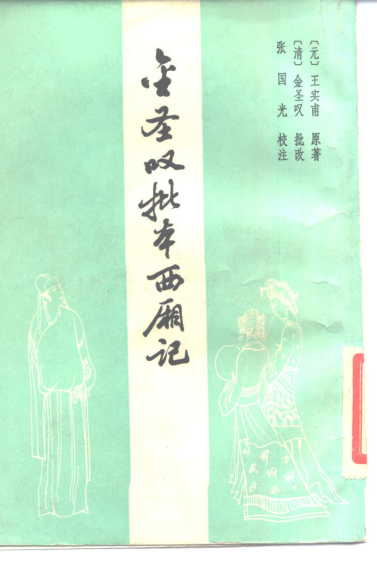 〔元〕王实甫 原著
〔清〕金圣叹 批改
张国光 校注
金圣叹批本西厢记